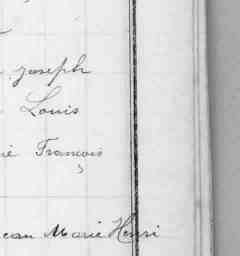 Joseph
Louis
François
Marie Henri